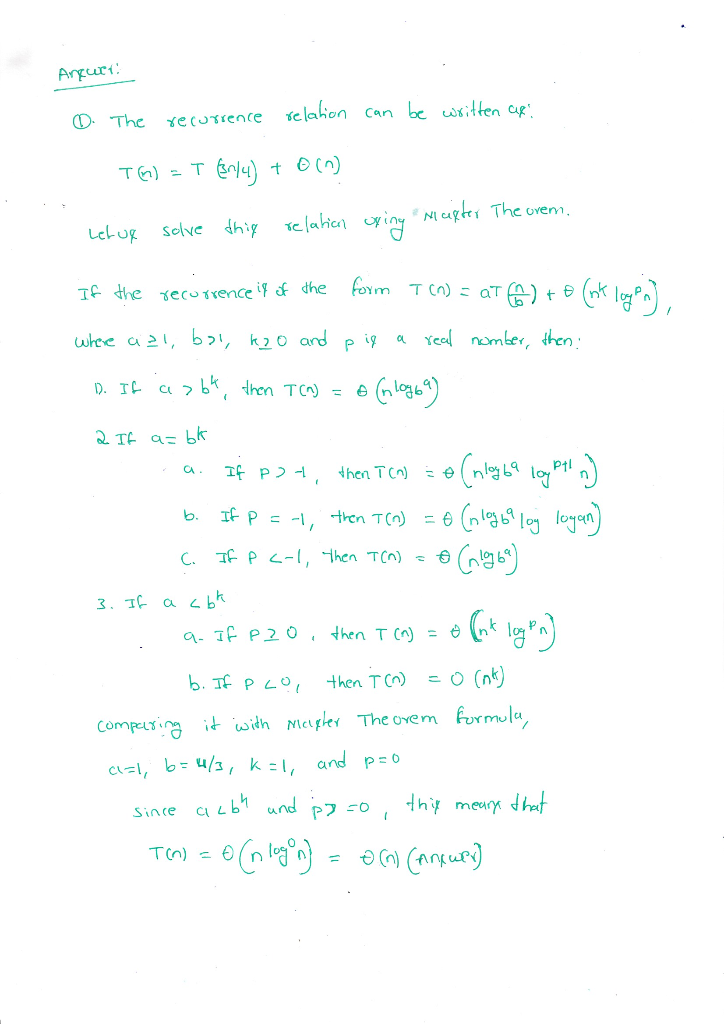 Answer:
①. The recurrence relation can be written as:
T(n) = T (3n/4) + Θ(n)
Let us solve this relation using Master Theorem.
If the recurrence is of the form T(n) = aT(n/b) + Θ(n^k log^p n),
where a ≥ 1, b>1, k ≥ 0 and p is a real number, then:
1). If a > b^k, then T(n) = Θ(n^log_b a)
2 If a = b^k
a. If p > -1, then T(n) = Θ(n^log_b a log^p+1 n)
b. If p = -1, then T(n) = Θ(n^log_b a log logn)
c. If p < -1, then T(n) = Θ(n^log_b a)
3. If a < b^k
a. If p ≥ 0, then T(n) = Θ(n^k log^p n)
b. If p < 0, then T(n) = O(n^k)
comparing it with Master Theorem formula,
a=1, b=4/3, k=1, and p=0
since a < b^k and p> =0, this means that
T(n) = Θ(n log^0 n) = Θ(n) (Answer)